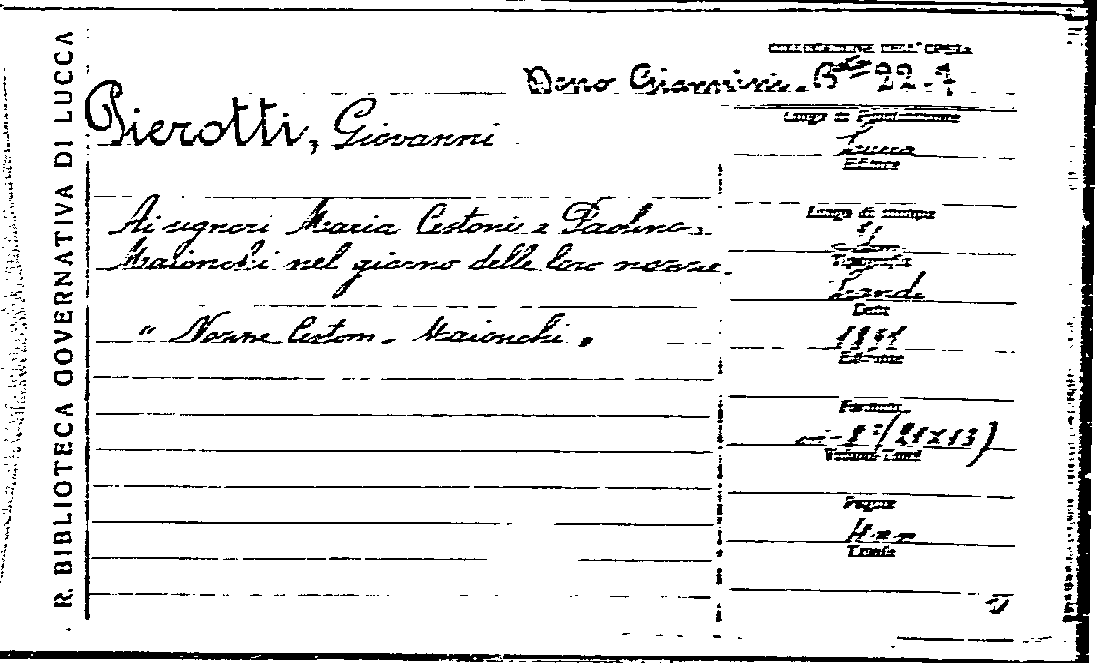 R. BIBLIOTECA GOVERNATIVA DI LUCCA
Dono Giannini. B.ta 22.7
Pierotti, Giovanni
Ai signori Maria Cestoni e Paolino
Maionchi nel giorno delle loro nozze.
"Nozze Cestoni - Maionchi".
Luogo di Pubblicazione
Lucca
Editore
Luogo di stampa
Tipografia
Landi
Data
1891
Edizione
Formato
in-8°(21x13)
Pagine